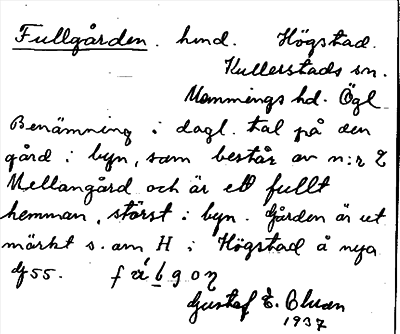 Fullgården. hmd. Högstad.
Kullerstads sn.
Memmings hd. Ögl
Benämning i dagl. tal på den
gård i byn, som består av n:r 2
Mellangård och är ett fullt
hemman, störst i byn. Gården är ut
märkt s. am H i Högstad å nya
55.
Gustef E.
1937